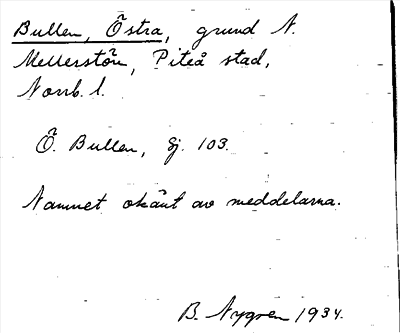 Bullen, Östra, grund N.
Mellerstön, Piteå stad,
Norrb. l.
Ö. Bullen, Sj. 103.
Namnet okänt av meddelarna.
B. Nygren 1934.